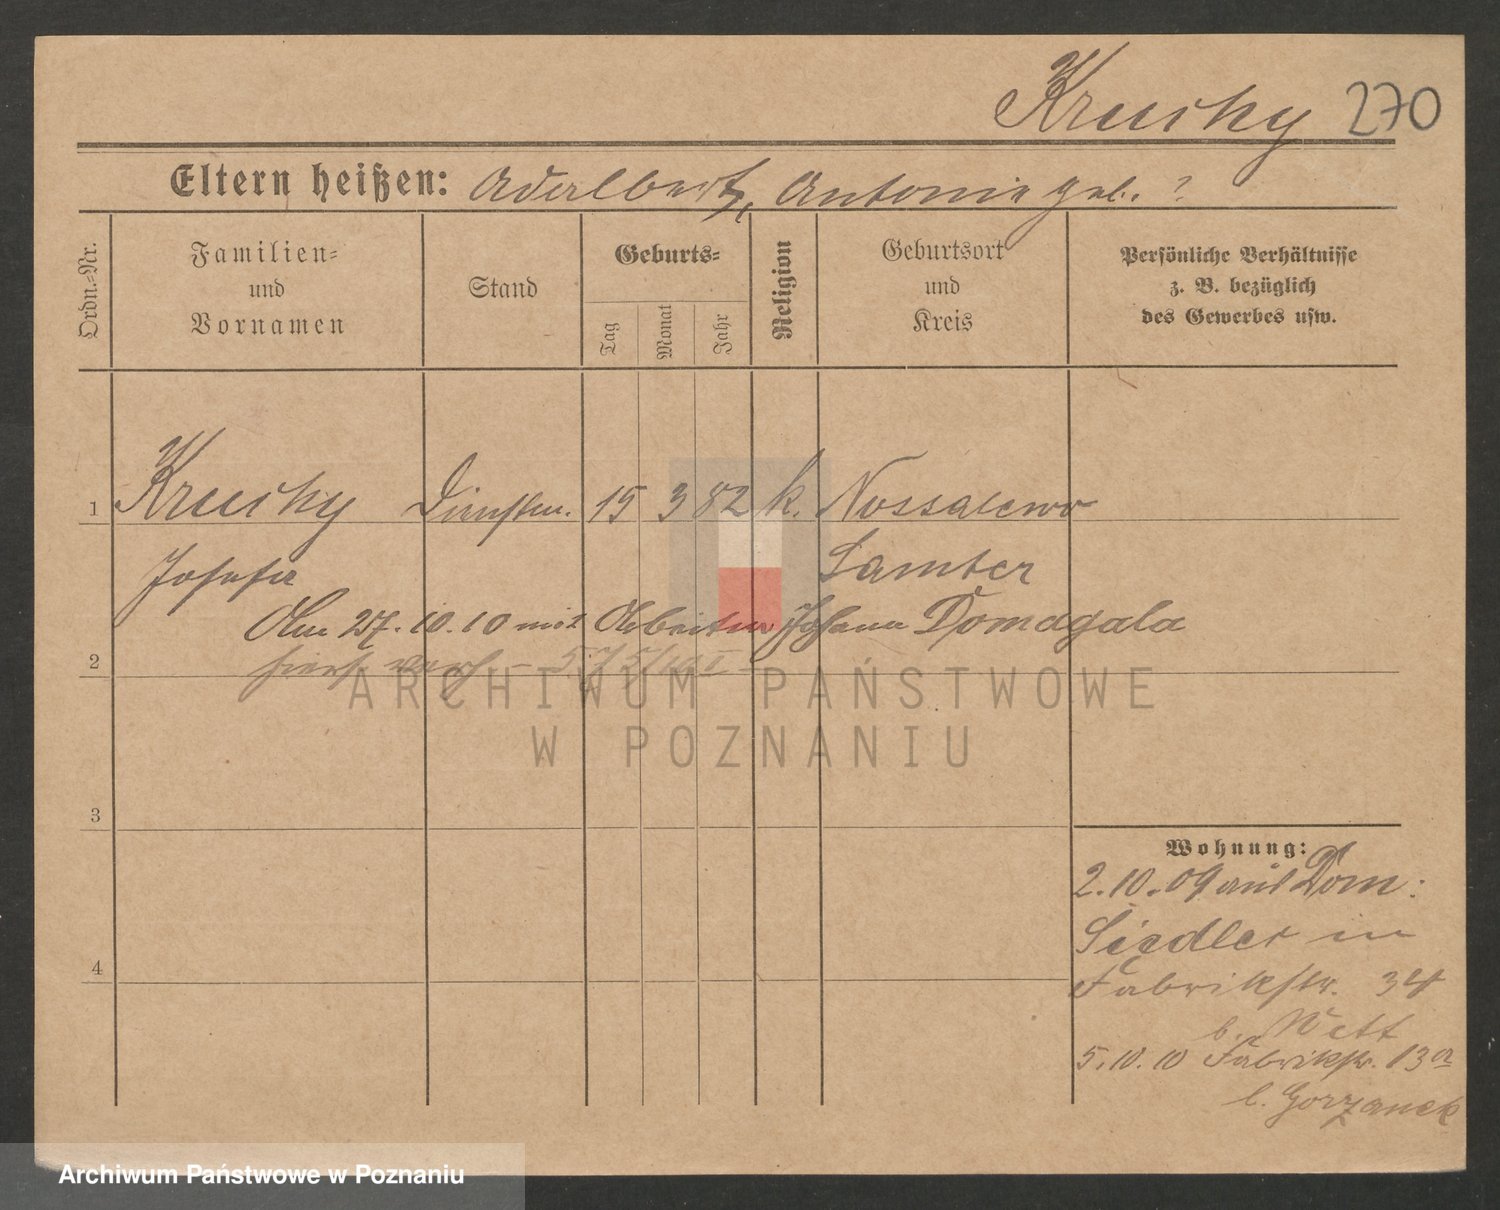 Krusky 270
Eltern heißen: Adalbert, Antonie geb. ?
Ordn.=Nr.
Familien=
und
Vornamen
Stand
Geburts=
Tag
Monat
Jahr
Religion
Geburtsort
und
Kreis
Persönliche Verhältnisse
z. B. bezüglich
des Gewerbes usw.
1 Krusky Dienstm. 15 3 82 k. Nossalewo
Josefa Samter
Am 27.10.10 mit Arbeiter Johann Domagala
2 hier verh.
3
4
Wohnung:
2.10.09 aus Dom:
Siedlec in
Fabrikstr. 34
b. Wett
5.10.10 Fabrikstr. 13a
b. Gorzanek
ARCHIWUM PAŃSTWOWE
W POZNANIU
Archiwum Państwowe w Poznaniu